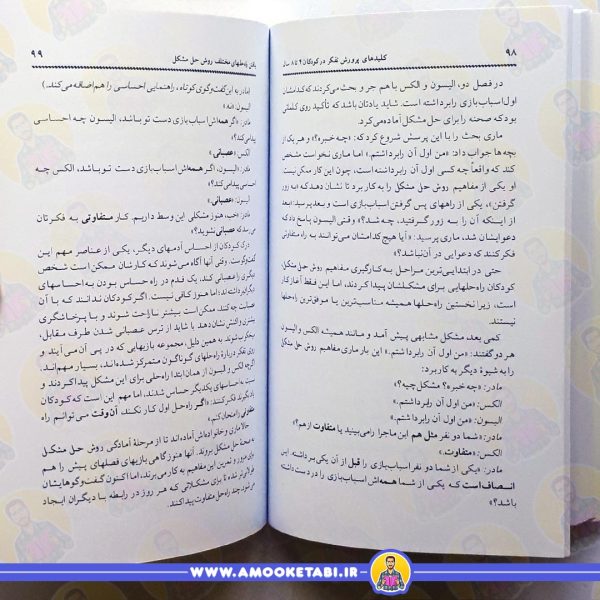 ۹۸ کلیدهای پرورش تفکر در کودکان ۴ تا ۸ سال
در فصل دو، الیسون و الکس با هم جر و بحث می‌کردند که کدامشان
اول اسباب‌بازی را برداشته است. شاید یادتان باشد که تأکید روی کلماتی
بود که صحنه را برای حل مشکل آماده می‌کرد.
ماری بحث را با این پرسش شروع کرد که: «چه خبره؟» و هر یک از
بچه‌ها جواب داد: «من اول آن را برداشتم.» اما ماری نخواست مشخص
کند که واقعاً چه کسی اول آن را برداشته است، چون این کار ممکن نیست.
او یکی از مفاهیم روش حل مشکل را به کار برد تا نشان دهد که (به زور
گرفتن)، یکی از راههای پس گرفتن اسباب‌بازی است و بعد پرسید: «بعد
از اینکه آن را به زور گرفتید، چه شد؟» وقتی الیسون پاسخ داد که
دعوایشان شد، ماری پرسید: «آیا هیچ کدامتان می‌توانند به راه متفاوتی
فکر کنند که دعوایی در آن نباشد؟»
حتی در ابتدایی‌ترین مراحل به کارگیری مفاهیم روش حل مشکل،
کودکان راه‌حلهایی برای مشکلشان پیدا کردند، اما این فقط آغاز کار
است، زیرا نخستین راه‌حلها همیشه مناسب‌ترین یا موفق‌ترین راه‌حلها
نیستند.
کمی بعد، مشکل مشابهی پیش آمد و مانند همیشه الکس و الیسون
هر دو گفتند: «من اول آن را برداشتم.» این بار ماری مفاهیم روش حل مشکل
را به شیوهٔ دیگر به کار برد:
مادر: «چه خبره؟ مشکل چیه؟»
الکس: «من اول آن را برداشتم.»
الیسون: «من اول آن را برداشتم.»
مادر: «شما دو نفر مثل هم این ماجرا را می‌بینید یا متفاوت از هم؟»
الکس: «متفاوت.»
مادر: «یکی از شما دو نفر اسباب‌بازی را قبل از آن یکی برداشته. این
انصاف است که یکی از شما همه‌اش اسباب‌بازی را در دست داشته
باشد؟»
یافتن راه‌حلهای مختلف روش حل مشکل ۹۹
(مادر به این گفت‌وگوی کوتاه، راهنمایی احساسی را هم اضافه می‌کند.)
الیسون: «نه.»
مادر: «اگر همه‌اش اسباب‌بازی دست تو باشد، الیسون چه احساسی
پیدا می‌کند؟»
الکس: «عصبانی.»
مادر: «الیسون، اگر همه‌اش اسباب‌بازی دست تو باشد، الکس چه
احساسی پیدا می‌کند؟»
الیسون: «عصبانی.»
مادر: «خب، هنوز مشکلی این وسط داریم. کار متفاوتی به فکرتان
می‌رسد که عصبانی نشوید؟»
درک کودکان از احساس آدمهای دیگر، یکی از عناصر مهم این
گفت‌وگوست. وقتی آنها آگاه می‌شوند که کارشان ممکن است شخص
دیگری را عصبانی کند، یک قدم در راه حساس بودن به احساسهای
دیگران برداشته‌اند؛ اما هنوز کافی نیست. اگر کودکان ندانند که با آن
عصبانیت چه کنند، ممکن است بیشتر ناراحت شوند و با پرخاشگری
بیشتری واکنش نشان دهند یا شاید از ترس عصبانی شدن طرف مقابل،
بگریزند. به همین دلیل، مجموعه بازیهایی که در پی آن می‌آیند و
روی تفکر دربارهٔ راه‌حلهای گوناگون متمرکز شده‌اند، بسیار مهم‌اند.
اگرچه الکس و الیسون از همان ابتدا راه‌حلی برای این مشکل پیدا کردند و
به احساسهای یکدیگر حساس شدند، اما مهم این است که کودکان
یاد بگیرند فکر کنند: «اگر راه‌حل اول کار نکند، آن‌وقت می‌توانم راه
متفاوتی را امتحان کنم.»
حالا ماری و خانواده‌اش آماده‌اند تا از مرحلهٔ آمادگی روش حل مشکل
به صحنهٔ حل مشکل بروند. آنها هنوز گاهی بازیهای فصلهای پیش را هم
برای مرور و تمرین این مفاهیم به کار می‌برند، اما اکنون گفت‌وگوهایشان
فراتر می‌رود تا برای مشکلاتی که هر روز در رابطه با دیگران ایجاد
می‌شود، چند راه‌حل متفاوت پیدا کنند.
WWW.AMOOKETABI.IR